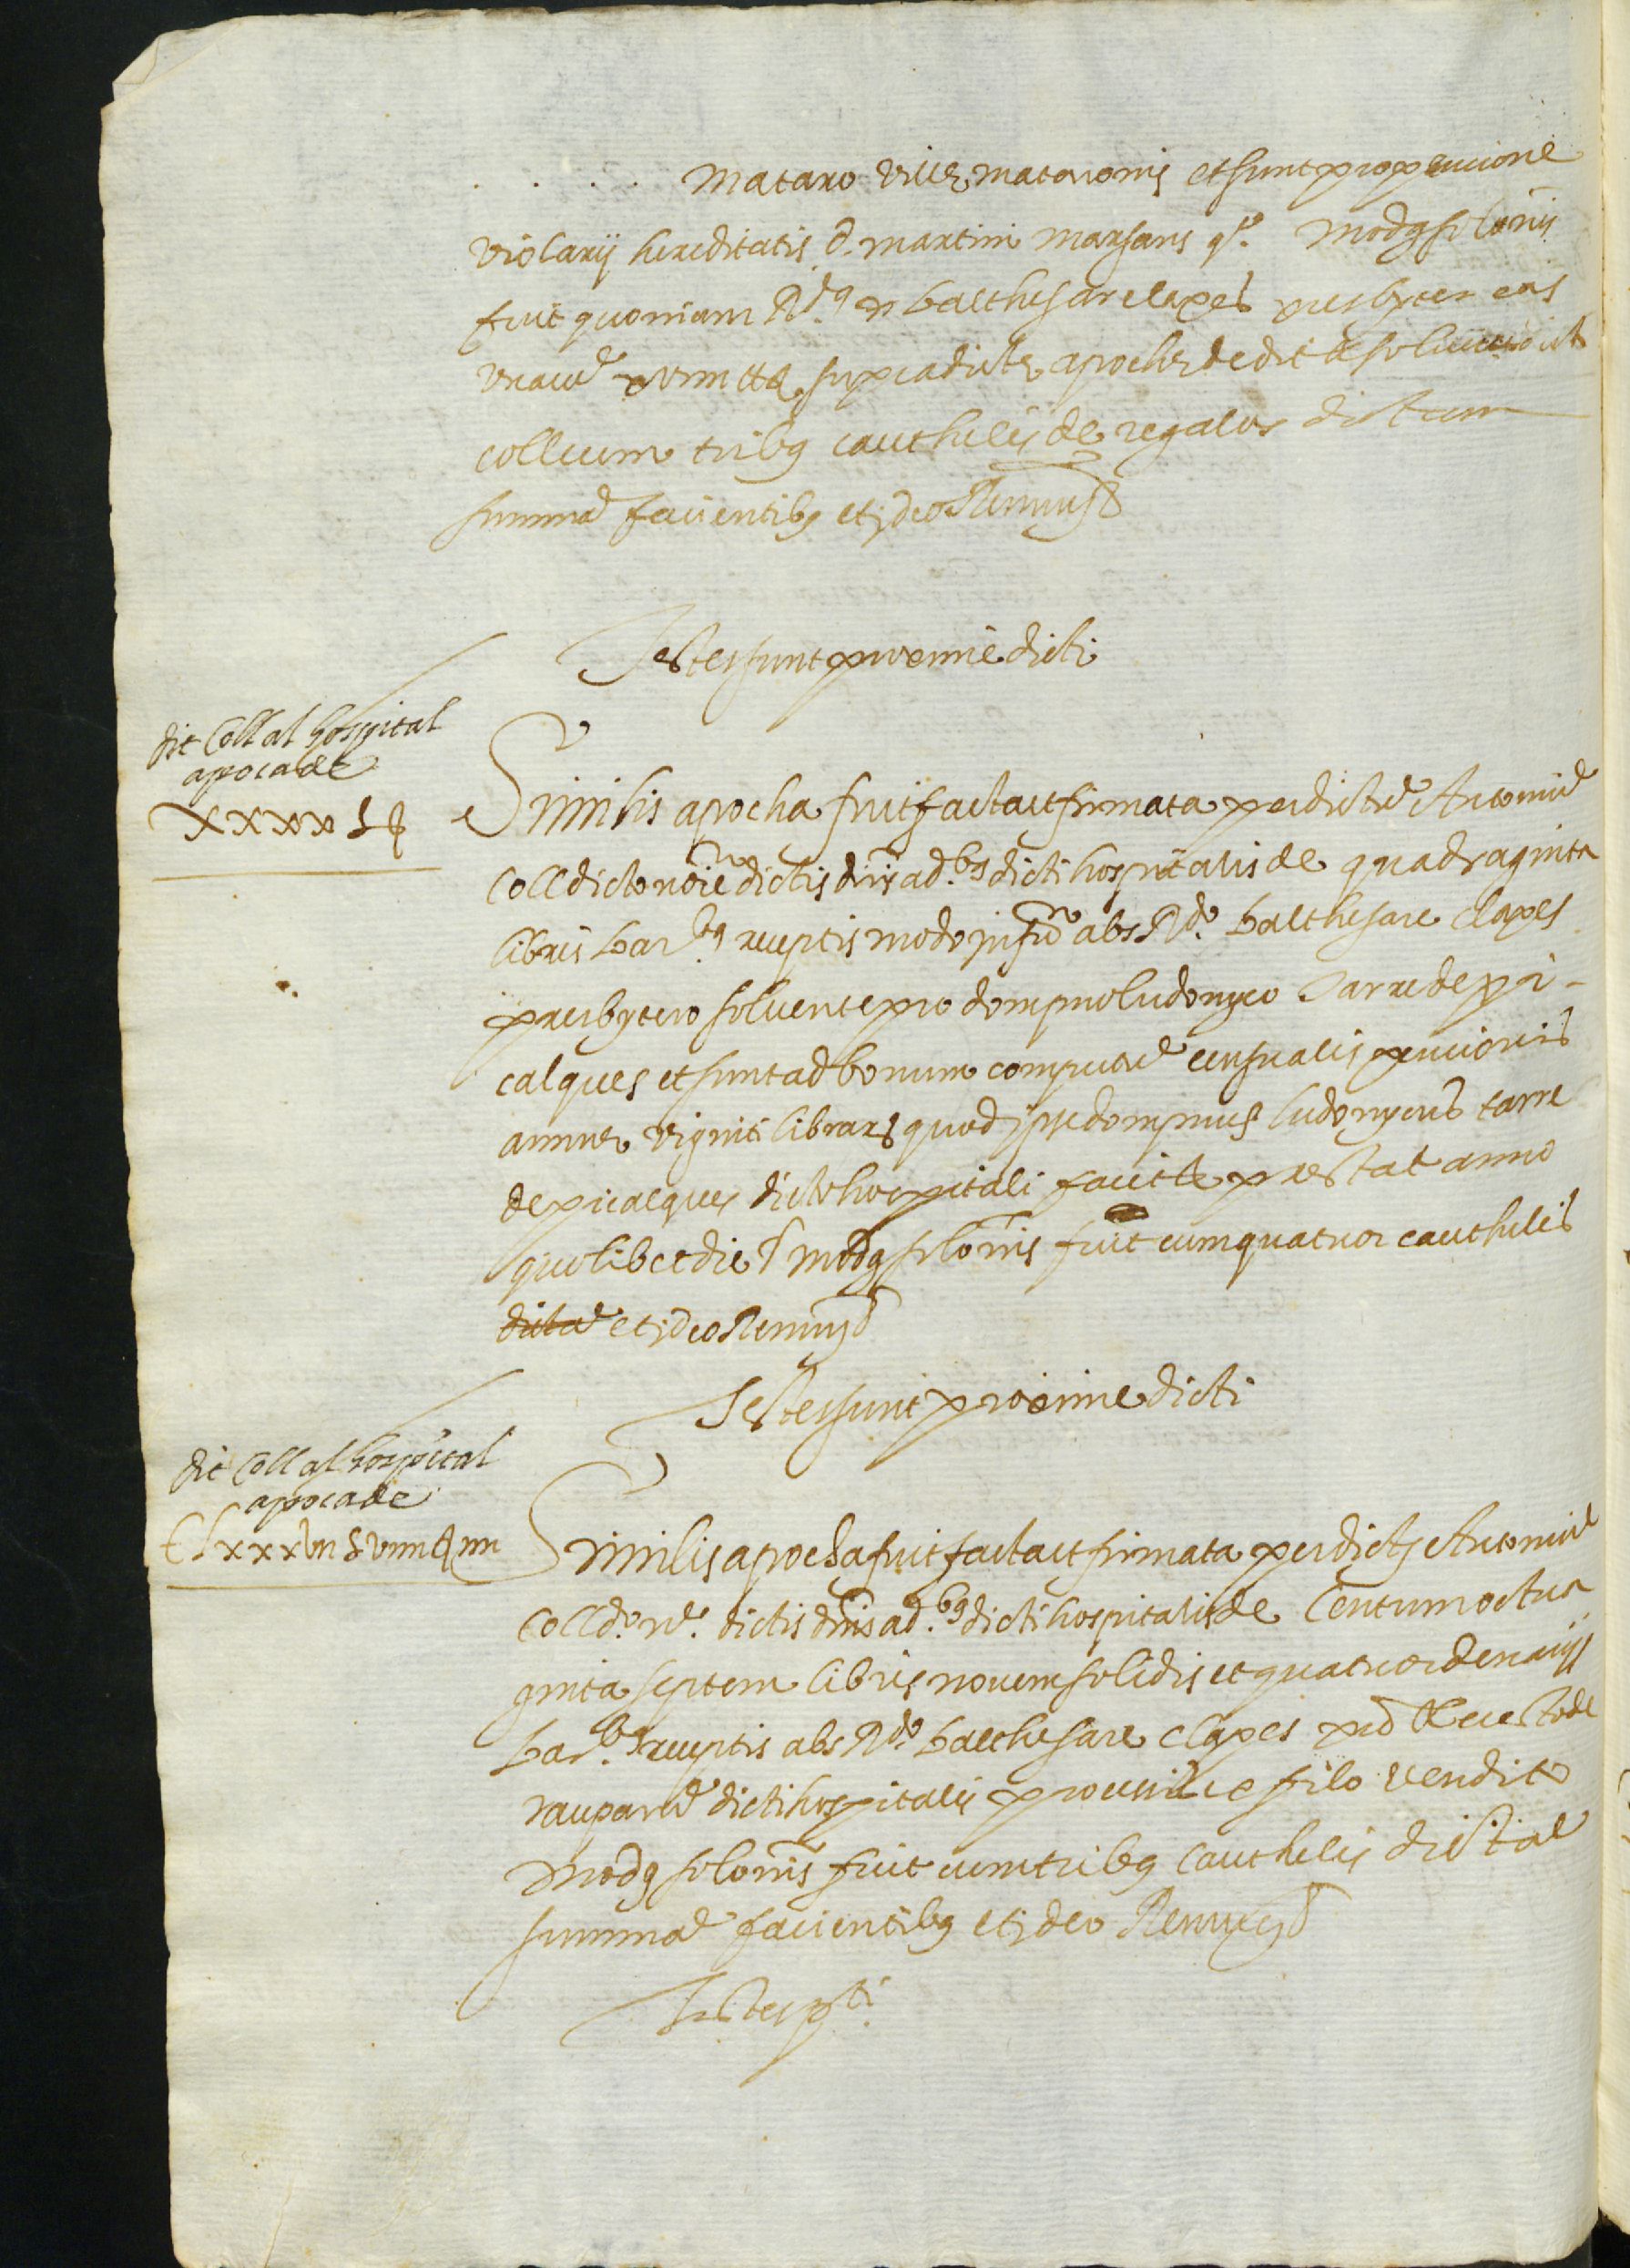 . . . . Mataro ville matoronis et sunt pro pencione
violarij hereditatis d. martini marsans qº. Modg solonis
fuit quoniam Rdg balthesar clapes presbyter eas
unacu supradicte apoche dedit et solvit dict
coll cum tribg cauthelis de regalos dictam
summa facientibg et ideo Renuns
Testes sunt proxime dicti
dit Coll al hospital
apoca de
xxxx L s
Similis apocha fuit facta et firmata per dictu Antoniu
Coll dicto noie dictis dnis ad.bs dicti hospitalis de quadraginta
libris bar.bg receptis modo infro abs Rdo. balthesare clapes
presbytero solvente pro dompno ludovyco tarre de pi-
calques et sunt ad bonum computu censualis pencionis
annue viginti librars quod ipse dompnus ludovycus tarre
de picalques dicto hospitali facit et prestat anno
quolibet die modg solonis fuit cum quatuor cauthelis
dicta et ideo Renuns
Testes sunt proxime dicti
dit Coll al hospital
apoca de
C Lxxxvii L viiii s iiii
Similis apocha fuit facta et firmata per dictu Antoniu
Coll do. no. dictis dnis ad.bg dicti hospitalis de Centum octua
ginta septem libris novem solidis et quatuor denariis
bar.bg receptis abs Rdo. balthesare clapes
dicti hospitalis pro filo vendito
Modg solonis fuit cum tribg cauthelis dictal
summa facientibg et ideo Renuns
Testes pti.